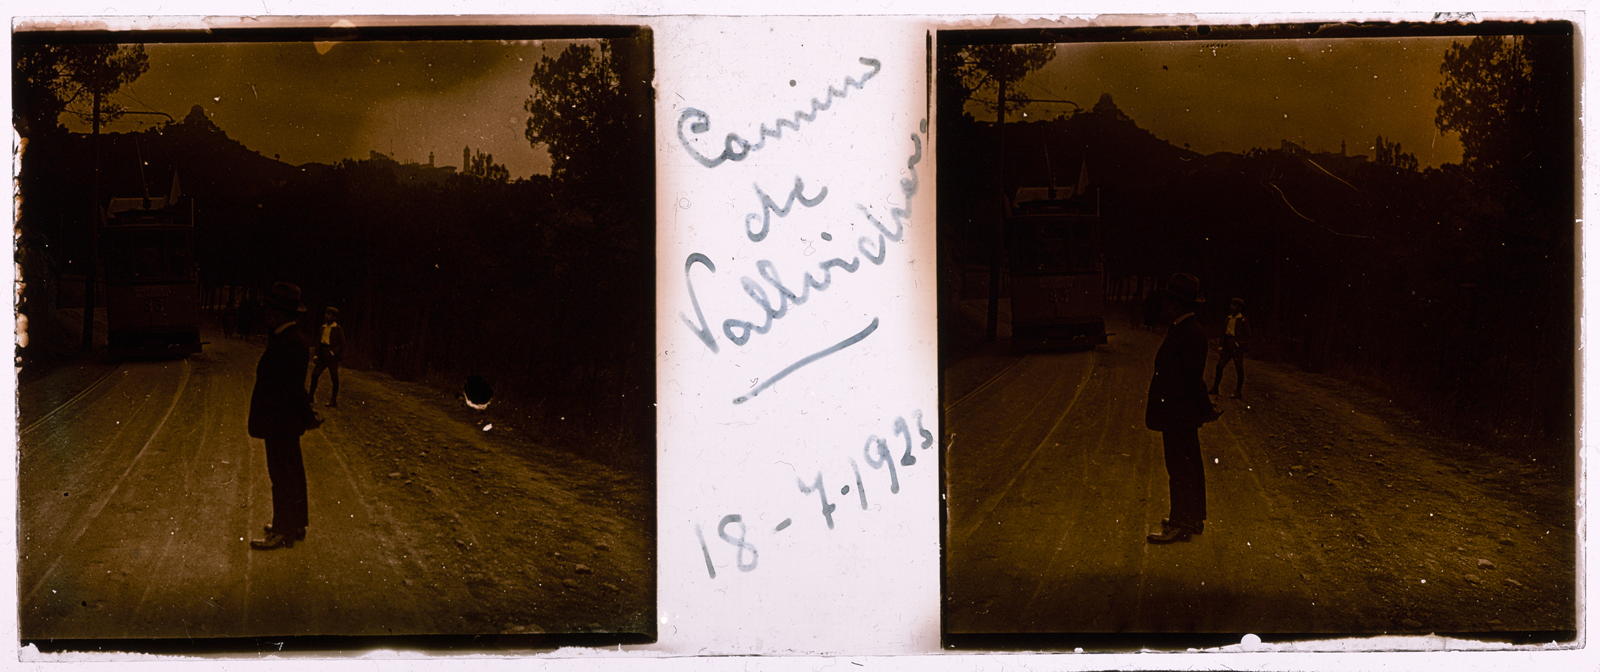 Camino
de
Vallvidrera
18-7-1923